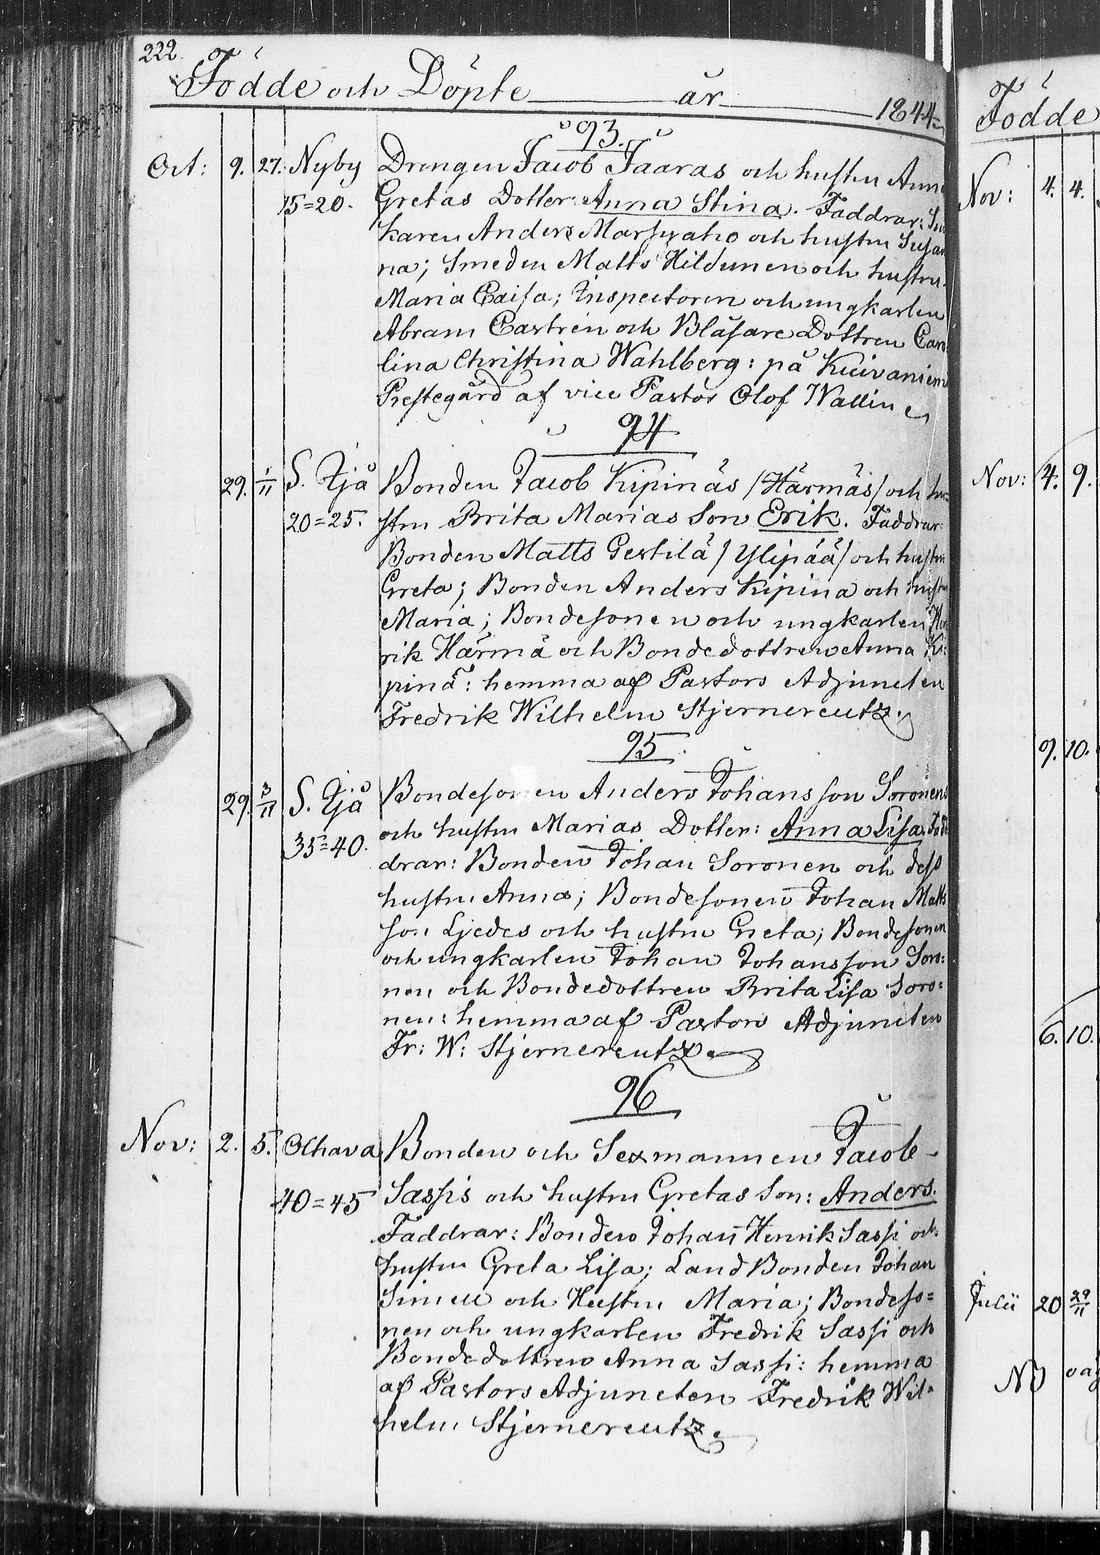 222.
Födde och Döpte år 1844
93.
Oct: 9. 27. Nyby Drengen Jacob Jaaras och hustru Anna
15=20. Gretas Dotter: Anna Stina. Faddrar:
karen Anders och hustru Susan
na; Smeden Matts Hildunen och hustru
Maria Caisa; Inspectoren och ungkarlen
Abram Castrén och Blåsare Dottren Caro
lina Christina Wahlberg: på Kuivaniemi
Prestegård af vice Pastor Olof Wallin
94
29. 1/11 S. Ijå Bonden Jacob Kipinäs /Härmäs/ och hu
20=25. stru Brita Marias Son Erik. Faddrar:
Bonden Matts Pertilä /Ylipää/ och hustru
Greta; Bonden Anders Kipinä och hustru
Maria; Bondesonen och ungkarlen Hen
rik Härmä och Bondedottren Anna Ki:
pinä: hemma af Pastors Adjuncten
Fredrik Wilhelm Stjernereutz.
95
29. 3/11 S. Ijå Bondesonen Anders Johansson Soronens
35=40. och hustru Marias Dotter: Anna Lisa. Fad
drar: Bonden Johan Soronen och dess
hustru Anna; Bondesonen Johan Matts
son Ljedes och hustru Greta; Bondesonen
och ungkarlen Johan Johansson Soro:
nen och Bondedottren Brita Lisa Soro:
nen: hemma af Pastors Adjuncten
Fr: W: Stjernereutz.
96
Nov: 2. 5. Olhava Bonden och Sexmannen Jacob
40=45 Sassis och hustru Gretas Son: Anders.
Faddrar: Bonden Johan Henrik Sassi och
hustru Greta Lisa; Land Bonden Johan
Simen och Hustru Maria; Bondeso=
nen och ungkarlen Fredrik Sassi och
Bondedottren Anna Sassi: hemma
af Pastors Adjuncten Fredrik Wil=
helm Stjernereutz.
Födde
Nov: 4. 4.
Nov: 4. 9.
9. 10.
6. 10.
Julii 20 29/11